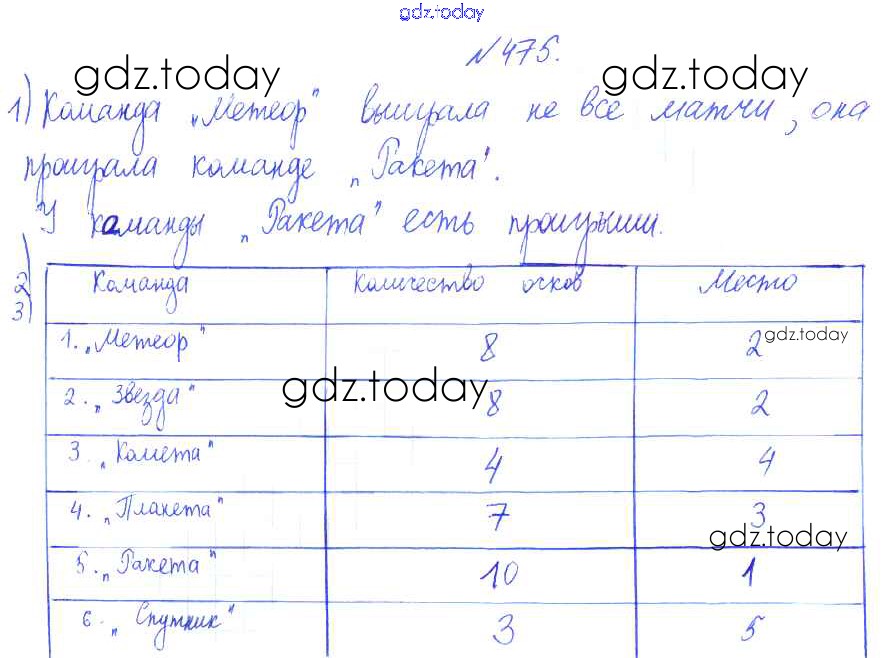 gdz.today
№ 475.
gdz.today gdz.today
1) Команда „Метеор" выиграла не все матчи, она
проиграла команде „Ракета".
У команды „Ракета" есть проигрыши.
2)
3)
Команда Количество очков Место
1. „Метеор" 8 2 gdz.today
gdz.today
2. „Звезда" 8 2
3. „Комета" 4 4
4. „Планета" 7 3
gdz.today
5. „Ракета" 10 1
6. „Спутник" 3 5